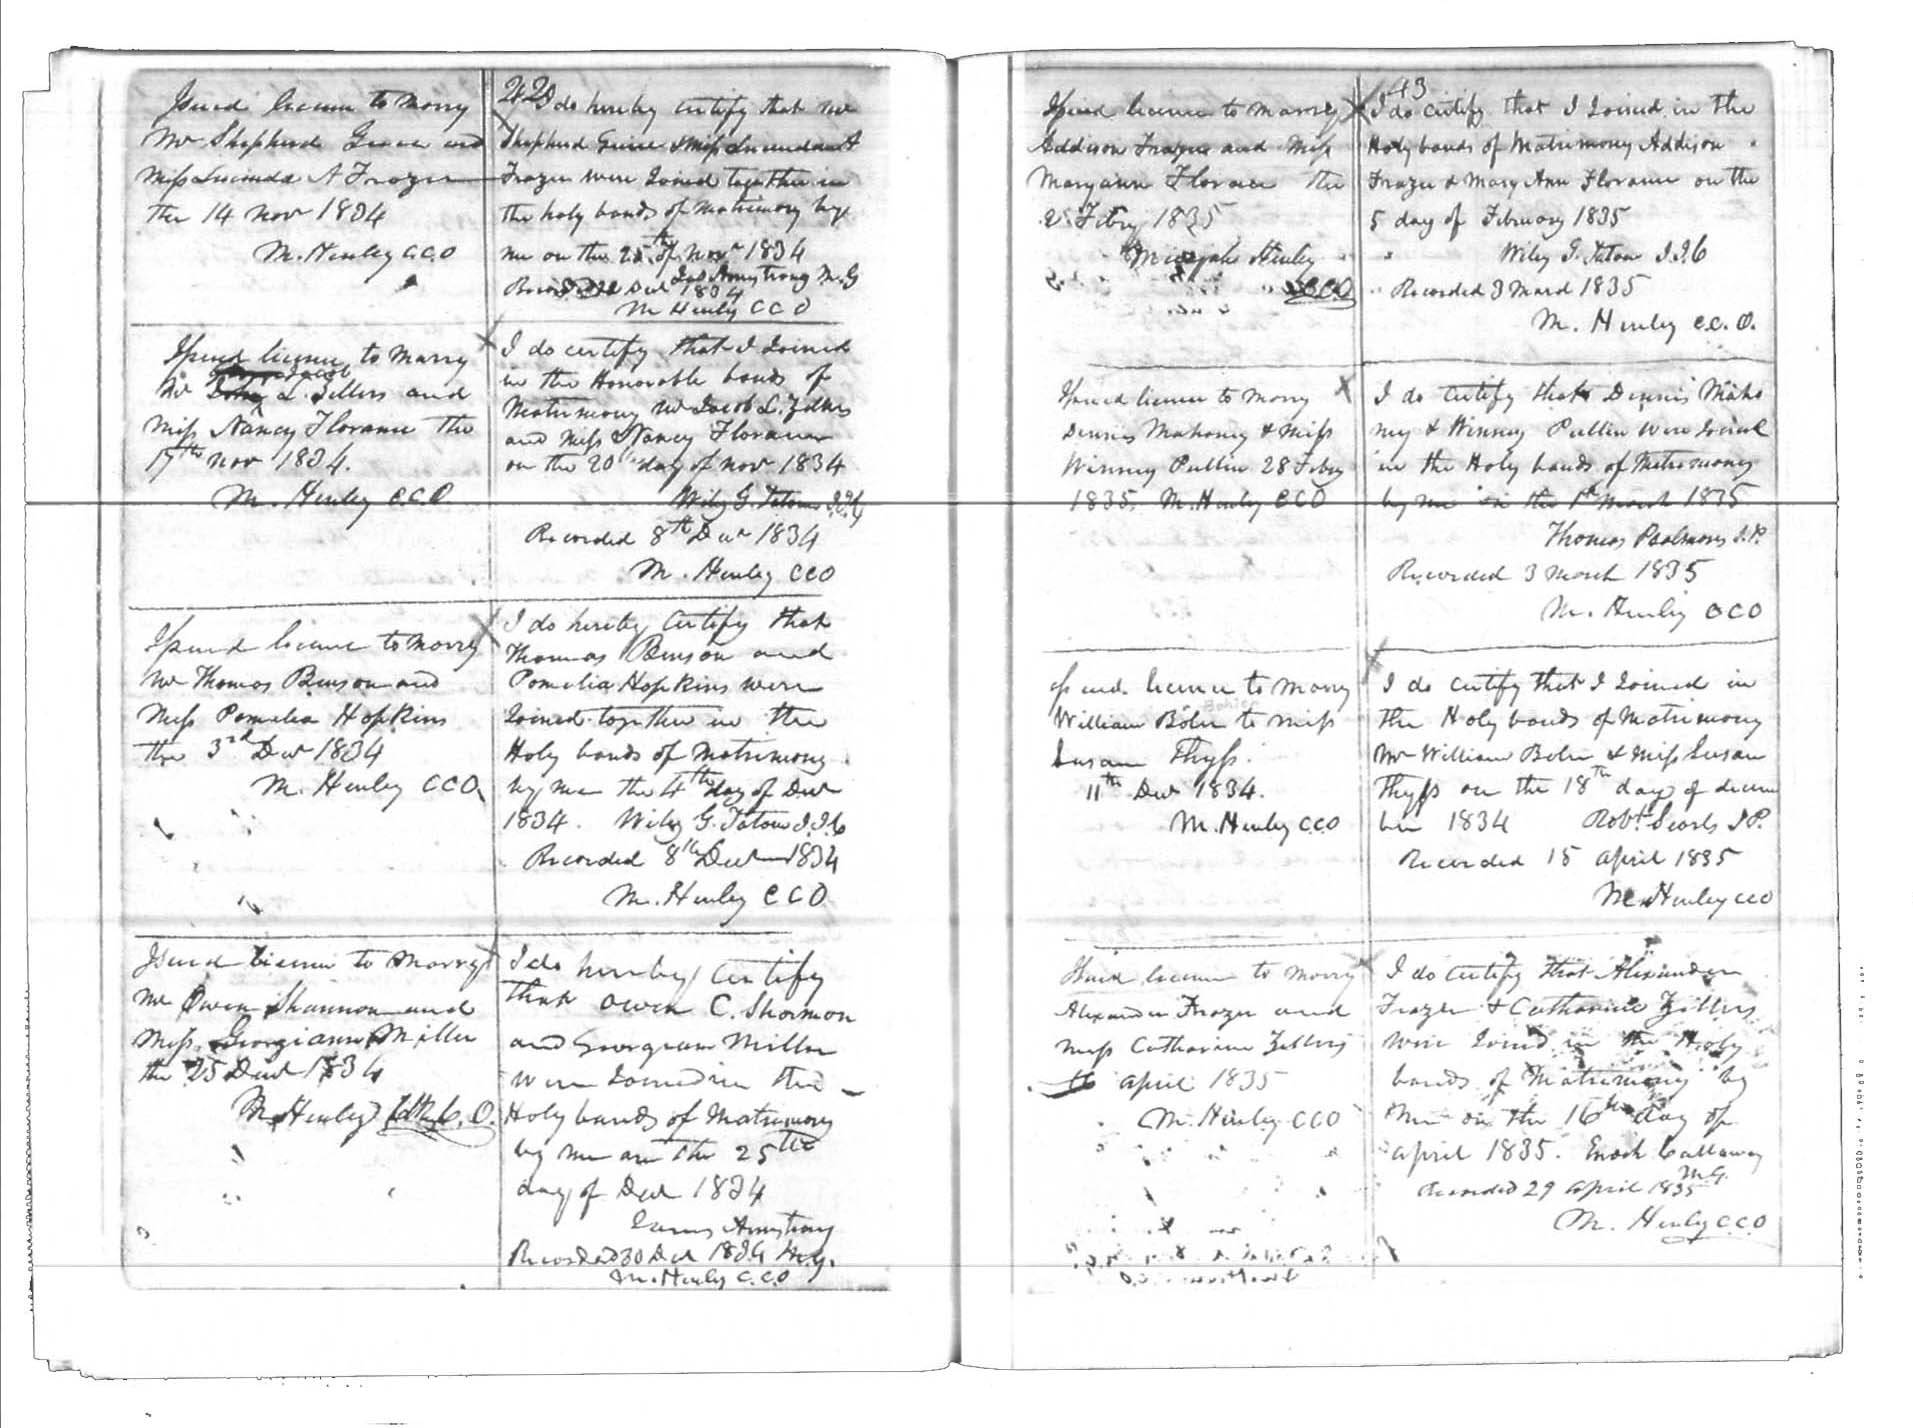 Issued licence to marry
Mr Shepherd Grice and
Miss Lucinda A Frazer
the 14 Nov 1834
M. Henley CCO
42
I do hereby certify that Mr
Shepherd Grice & Miss Lucinda A
Frazer were Joined together in
the holy bands of Matrimony by
me on the 25th of Novr 1834
Jas Armstrong M.G
Recorded Decr 1834
M Henley CCO
Issued licence to Marry
Jacob
Mr L. Zellers and
Miss Nancy Florance the
17th Nov 1834.
M. Henley C.C.O.
I do certify that I Joined
in the Honorable bands of
Matrimony Mr Jacob L. Zellers
and Miss Nancy Florance
on the 20th day of Novr 1834
Wiley G. Tatom
Recorded 8th Decr 1834
M. Henley CCO
Issued licence to Marry
Mr Thomas Benson and
Miss Pamelia Hopkins
the 3rd Decr 1834
M. Henley CCO.
I do hereby certify that
Thomas Benson and
Pamelia Hopkins were
Joined together in the
Holy bands of Matrimony
by me the 4th day of Decr
1834. Wiley G. Tatom J.I.C
Recorded 8th Decr 1834
M. Henley CCO
Issued licence to Marry
Mr Owen Shannon and
Miss Georgiann Miller
the 25 Decr 1834
M. Henley C.O.
I do hereby certify
that Owen C. Shannon
and Georgeann Miller
were Joined in the
Holy bands of Matrimony
by me on the 25th
day of Decr 1834
James Armstrong
Recorded 30 Decr 1834 M.G.
M. Henley C.C.O
Issued licence to marry
Addison Frazer and Miss
Maryann Florance the
2 Febry 1835
Micajah Henley
CCO
43
I do certify that I Joined in the
Holy bands of Matrimony Addison
Frazer & Mary Ann Florance on the
5 day of February 1835
Wiley G. Tatom J.I.C
Recorded 3 March 1835
M. Henley C.C.O.
Issued licence to Marry
Dennis Mahoney & Miss
Winney Pullin 28 Febry
1835 M. Henley CCO
I do certify that Dennis Maho
ney & Winney Pullin were Joined
in the Holy bands of Matrimony
by me on the 1st March 1835
Thomas Psalmons J.P.
Recorded 3 March 1835
M. Henley CCO
Issued licence to Marry
William Boler to Miss
Susan Thyss.
11th Decr 1834.
M. Henley CCO
I do certify that I Joined in
the Holy bands of Matrimony
Mr William Boler & Miss Susan
Thyss on the 18th day of decem
ber 1834 Robt. Searls J.P.
Recorded 15 April 1835
M. Henley CCO
Issued licence to Marry
Alexander Frazer and
Miss Catharine Zellers
16 April 1835
M. Henley CCO
I do certify that Alexander
Frazer & Catharine Zillers
were Joined in the Holy
bands of Matrimony by
me on the 16th day of
April 1835. Enoch Callaway
M.G.
Recorded 29 April 1835
M. Henley CCO